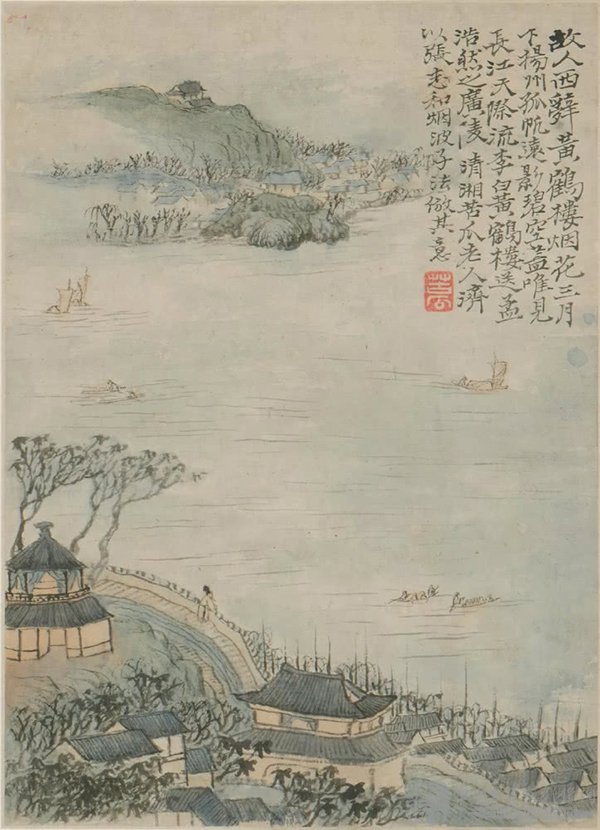 故人西辭黃鶴樓烟花三月
下揚州孤帆遠影碧空盡唯見
長江天際流李白黃鶴樓送孟
浩然之廣陵清湘苦瓜老人濟
以張志和烟波子法倣其意